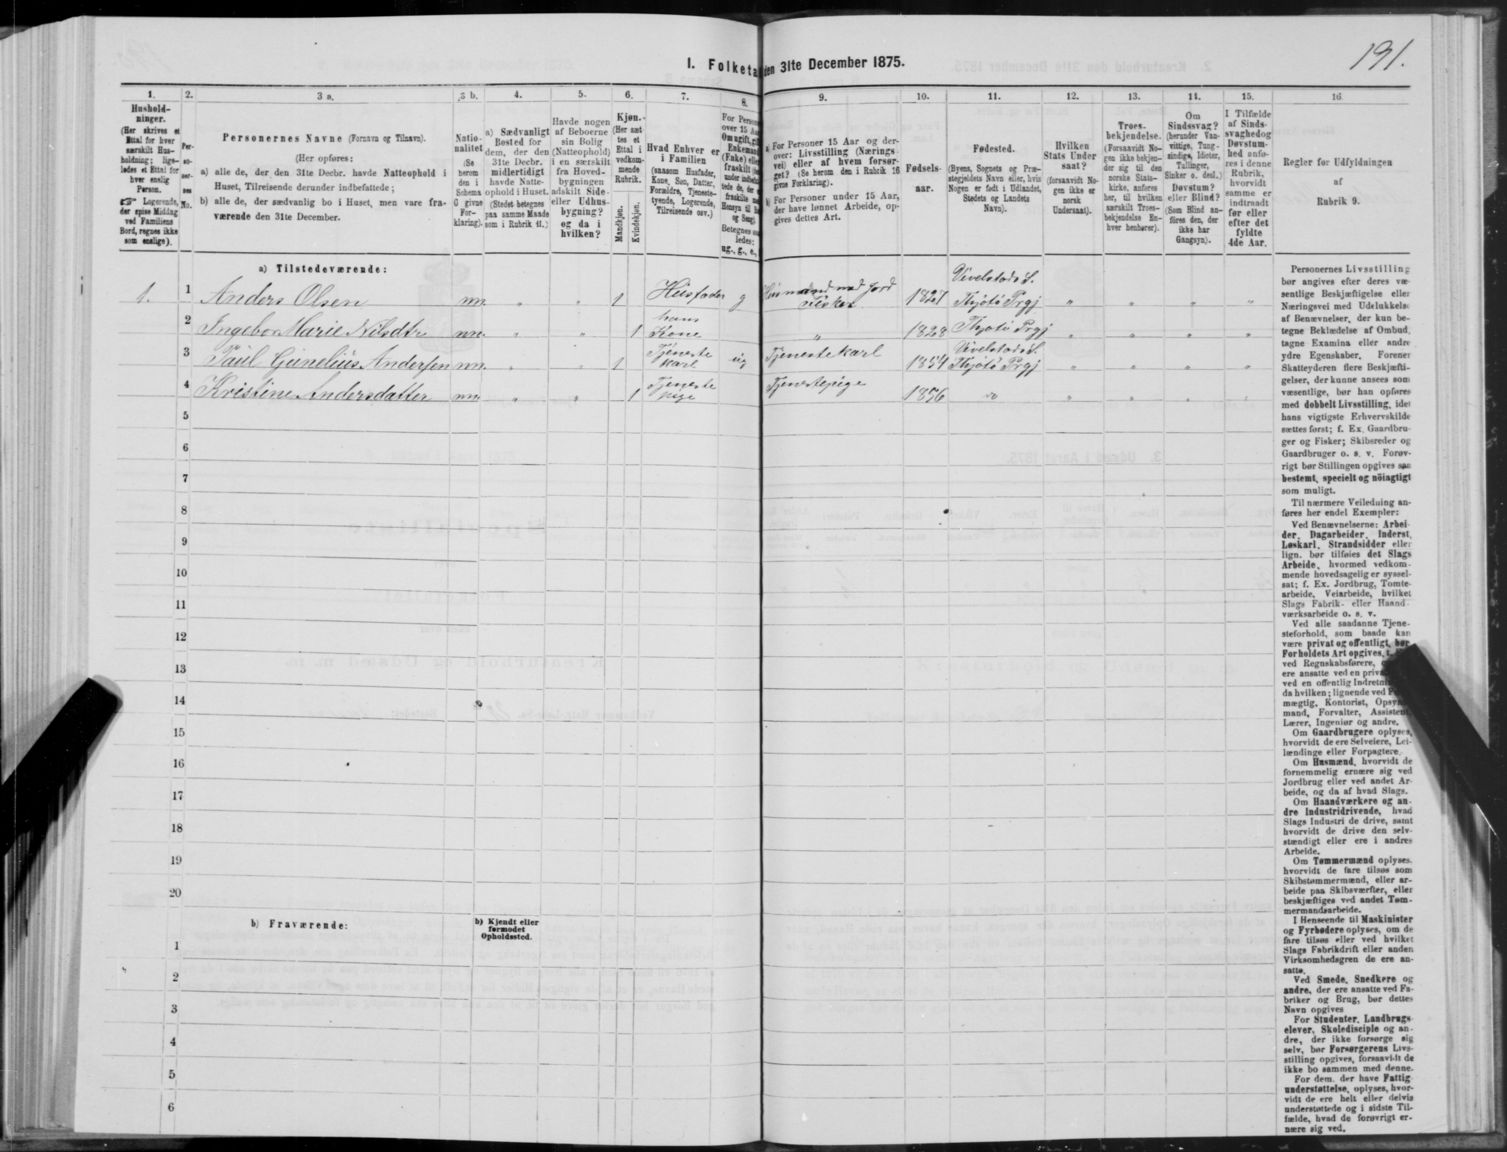 191.
I. Folketa den 31te December 1875.
1. 2. 3 a. 3 b. 4. 5. 6. 7. 8. 9. 10. 11. 12. 13. 14. 15. 16
Hushold-
ninger.
(Her skrives et
Ettal for hver
særskilt Hus-
holdning; lige-
ledes et Ettal for
hver enslig
Person.
☞ Logerende,
der spise Middag
ved Familiens
Bord, regnes ikke
som enslige).
Per-
so-
ner-
nes
No.
Personernes Navne (Fornavn og Tilnavn).
(Her opføres:
a) alle de, der den 31te Decbr. havde Natteophold i
Huset, Tilreisende derunder indbefattede;
b) alle de, der sædvanlig bo i Huset, men vare fra-
værende den 31te December.
Natio-
nalitet
(Se
herom
den i
Schema
G givne
For-
klaring).
a) Sædvanligt
Bosted for
dem, der den
31te Decbr.
midlertidigt
havde Natte-
ophold i Huset.
(Stedet betegnes
paa samme Maade
som i Rubrik 11.)
Havde nogen
af Beboerne
sin Bolig
(Natteophold)
i en særskilt
fra Hoved-
bygningen
adskilt Side-
eller Udhus-
bygning?
og da i
hvilken?
Kjøn.
(Her sæt-
tes et
Ettal i
vedkom-
mende
Rubrik.
Mandkjøn.
Kvindekjøn.
Hvad Enhver er
i Familien
(saasom Husfader,
Kone, Søn, Datter,
Forældre, Tjeneste-
tyende, Logerende,
Tilreisende osv.)
For Person
over 15 Aa
Om ugift, gif
Enkemand
(Enke) elle
fraskilt
under indbefa
tede de, der e
fraskilte m
Hensyn til B
og Seng).
Betegnes so
ledes:
ug., g., e.,
a) For Personer 15 Aar og der-
over: Livsstilling (Nærings-
vei) eller af hvem forsør-
get? (Se herom den i Rubrik 16
givne Forklaring).
b) For Personer under 15 Aar,
der have lønnet Arbeide, op-
gives dettes Art.
Fødsels-
aar.
Fødested.
(Byens, Sognets og Præ-
stegjeldets Navn eller, hvis
Nogen er født i Udlandet,
Stedets og Landets
Navn).
Hvilken
Stats Under
saat?
(forsaavidt No-
gen ikke er
norsk
Undersaat).
Troes-
bekjendelse.
(Forsaavidt No-
gen ikke bekjen-
der sig til den
norske Stats-
kirke, anføres
her, til hvilken
særskilt Troes-
bekjendelse En-
hver henhører).
Om
Sindssvag?
(herunder Van-
vittige, Tung-
sindige, Idioter,
Tullinger,
Sinker o. desl.)
Døvstum?
eller Blind?
(Som Blind an-
føres den, der
ikke har
Gangsyn).
I Tilfælde
af Sinds-
svaghedog
Døvstum-
hed anfø-
res i denne
Rubrik,
hvorvidt
samme er
indtraadt
før eller
efter det
fyldte
4de Aar.
Regler før Udfyldningen
af
Rubrik 9.
a) Tilstedeværende:
1. 1 Anders Olsen nn. „ „ 1 Husfader g Husmand med Jord Fisker 1827 Vivelstads S. Thjøtø Prgj „ „ „ „
2 Ingebor Marie Nilsdtr nn. „ „ 1 hans Kone „ 1828 Thjøtø Prgj „ „ „ „
3 Paul Gunelius Andersen nn. „ „ 1 Tjeneste karl ug Tjenestekarl 1854 Vivelstads S. Thjøtø Prgj „ „ „ „
4 Kristine Andersdatter nn. „ „ 1 Tjeneste pige Tjenestepige 1856 „ „ „ „ „
5
6
7
8
9
10
11
12
13
14
15
16
17
18
19
20
b) Fraværende:
b) Kjendt eller
formodet
Opholdssted.
1
2
3
4
5
6
Personernes Livsstilling
bør angives efter deres væ-
sentlige Beskjæftigelse eller
Næringsvei med Udelukkels
af Benævnelser, der kun be-
tegne Beklædelse af Ombud,
tagne Examina eller andre
ydre Egenskaber. Forener
Skatteyderen flere Beskjæfti-
gelser, der kunne ansees som
væsentlige, bør han opføres
med dobbelt Livsstilling, idet
hans vigtigste Erhvervskilde
sættes først; f. Ex. Gaardbru-
ger og Fisker; Skibsreder og
Gaardbruger o. s. v. Forøv-
rigt bør Stillingen opgives saa
bestemt, specielt og nöiagtigt
som muligt.
Til nærmere Veiledning an-
føres her endel Exempler:
Ved Benævnelserne: Arbei-
der, Dagarbeider, Inderst,
Løskarl, Strandsidder eller
lign. bør tilføies det Slags
Arbeide, hvormed vedkom-
mende hovedsagelig er syssel-
sat; f. Ex. Jordbrug, Tomte-
arbeide, Veiarbeide, hvilket
Slags Fabrik- eller Haand-
værksarbeide o. s. v.
Ved alle saadanne Tjene-
steforhold, som baade kan
være privat og offentligt, bør
Forholdets Art opgives,
ved Regnskabsførere,
ere ansatte ved en priva
ved en offentlig Indretni
da hvilken; lignende ved F
mægtig, Kontorist, Opsy
mand, Forvalter, Assistent,
Lærer, Ingeniør og andre.
Om Gaardbrugere oplyses,
hvorvidt de ere Selveiere, Lei-
lændinge eller Forpagtere.
Om Husmænd, hvorvidt de
fornemmelig ernære sig ved
Jordbrug eller ved andet Ar-
beide, og da af hvad Slags.
Om Haandværkere og an-
dre Industridrivende, hvad
Slags Industri de drive, samt
hvorvidt de drive den selv-
stændigt eller ere i andres
Arbeide.
Om Tømmermænd oplyses,
hvorvidt de fare tilsøs som
Skibstømmermænd, eller ar-
beide paa Skibsværfter, eller
beskjæftiges ved andet Tøm-
mermandsarbeide.
I Henseende til Maskinister
og Fyrbødere oplyses, om de
fare tilsøs eller ved hvilket
Slags Fabrikdrift eller anden
Virksomhedsgren de ere an-
satte.
Ved Smede, Snedkere og
andre, der ere ansatte ved Fa-
briker og Brug, bør dettes
Navn opgives
For Studenter, Landbrugs-
elever, Skoledisciple og an-
dre, der ikke forsørge sig
selv, bør Forsørgerens Livs-
stilling opgives, forsaavidt de
ikke bo sammen med denne.
For dem, der have Fattig-
understøttelse, oplyses, hvor-
vidt de ere helt eller delvis
understøttede og i sidste Til-
fælde, hvad de forøvrigt er-
nære sig ved.